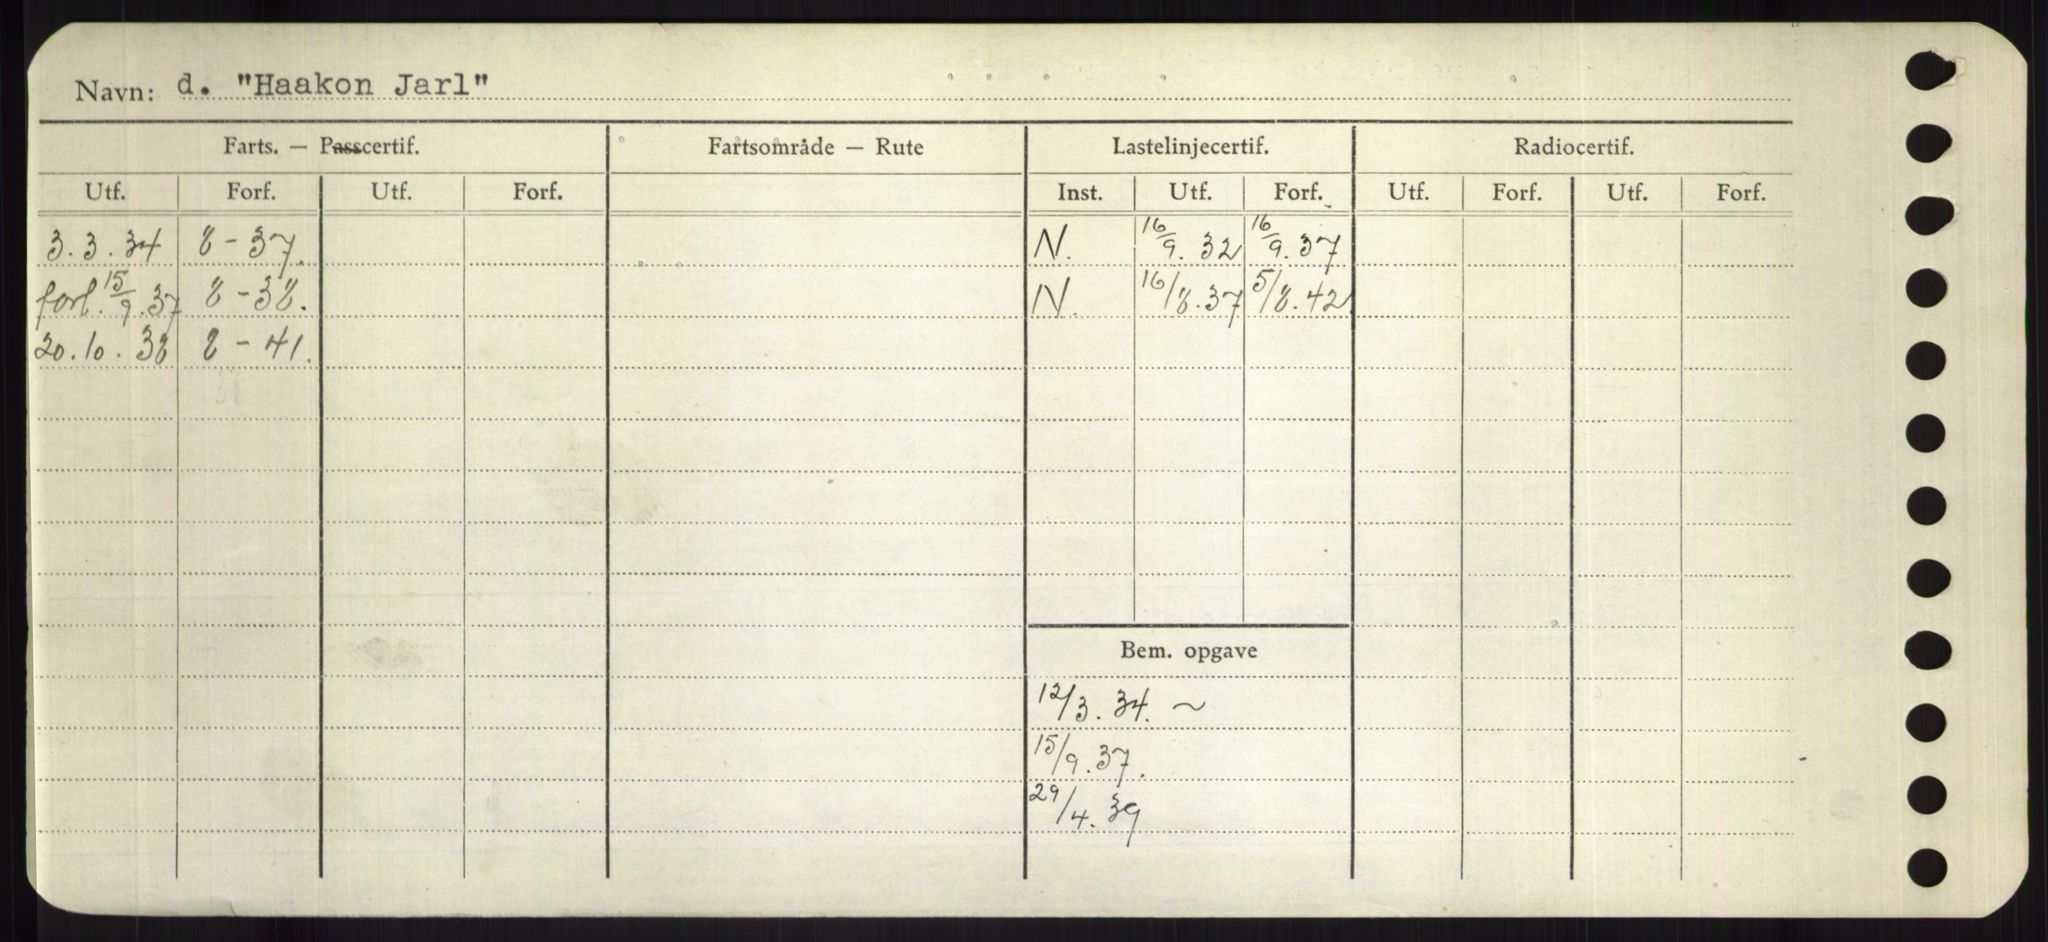 Navn: d. "Haakon Jarl"
Farts. — Passcertif. Fartsområde — Rute Lastelinjecertif. Radiocertif.
Utf. Forf. Utf. Forf. Inst. Utf. Forf. Utf. Forf. Utf. Forf.
3.3.34 8-37. N. 16/9.32 16/9.37
forl. 15/9.37 8-38. N. 16/8.37 5/8.42
20.10.38 8-41.
Bem. opgave
12/3.34. ~
15/9.37.
29/4.39